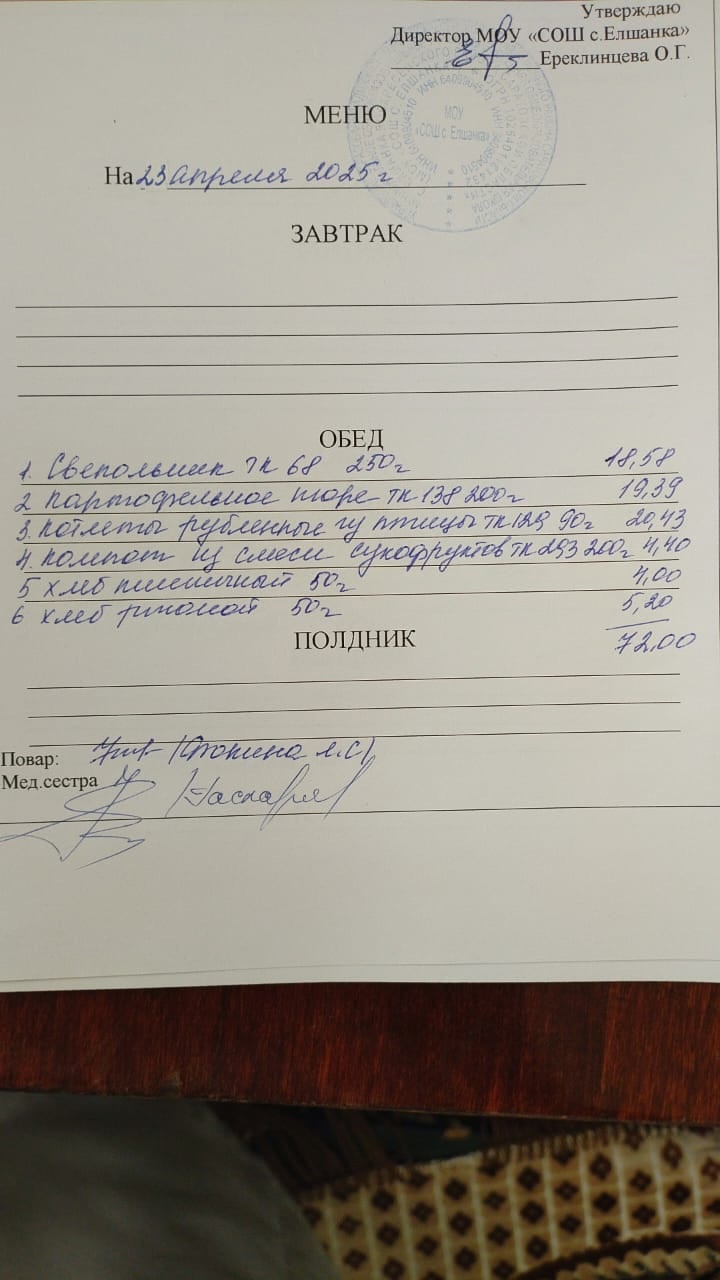 Утверждаю
Директор МОУ «СОШ с.Елшанка»
Ереклинцева О.Г.
МОУ
«СОШ с. Елшанка»
МЕНЮ
На 23 апреля 2025 г
ЗАВТРАК
ОБЕД
1. Свекольник ТК 68 250г 18,58
2 картофельное пюре ТК 138 200г 19,39
3. котлеты рубленные из птицы ТК 129 90г 20,43
4. компот из смеси сухофруктов ТК 293 200г 4,40
5 хлеб пшеничный 50г 4,00
6 хлеб ржаной 50г 5,20
72,00
ПОЛДНИК
Повар:
Мед.сестра